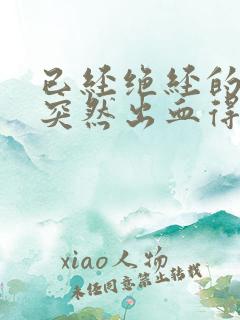 已经绝经的
突然出血得
xiao人物
未经同意禁止转载